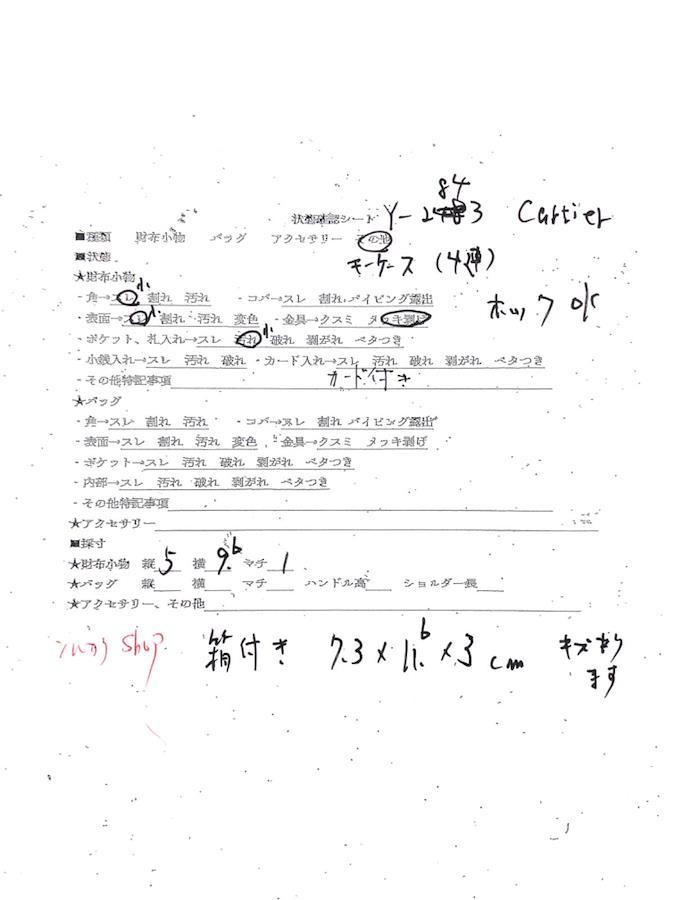 84
状態確認シート Y-2 3 Cartier
■種類 財布小物 バッグ アクセサリー その他
■状態 キーケース (4連)
★財布小物
小
・角→スレ 割れ 汚れ ・コバ→スレ 割れ パイピング露出 ホック OK
小
・表面→スレ 割れ 汚れ 変色 ・金具→クスミ メッキ剥げ
小
・ポケット、札入れ→スレ 汚れ 破れ 剥がれ ベタつき
・小銭入れ→スレ 汚れ 破れ ・カード入れ→スレ 汚れ 破れ 剥がれ ベタつき
・その他特記事項 カード付き
★バッグ
・角→スレ 割れ 汚れ ・コバ→スレ 割れ パイピング露出
・表面→スレ 割れ 汚れ 変色 ・金具→クスミ メッキ剥げ
・ポケット→スレ 汚れ 破れ 剥がれ ベタつき
・内部→スレ 汚れ 破れ 剥がれ ベタつき
・その他特記事項
★アクセサリー
■採寸
★財布小物 縦 5 横 9.6 マチ 1
★バッグ 縦 横 マチ ハンドル高 ショルダー長
★アクセサリー、その他
shop 箱付き 7.3×11.6×3 cm キズあり
ます